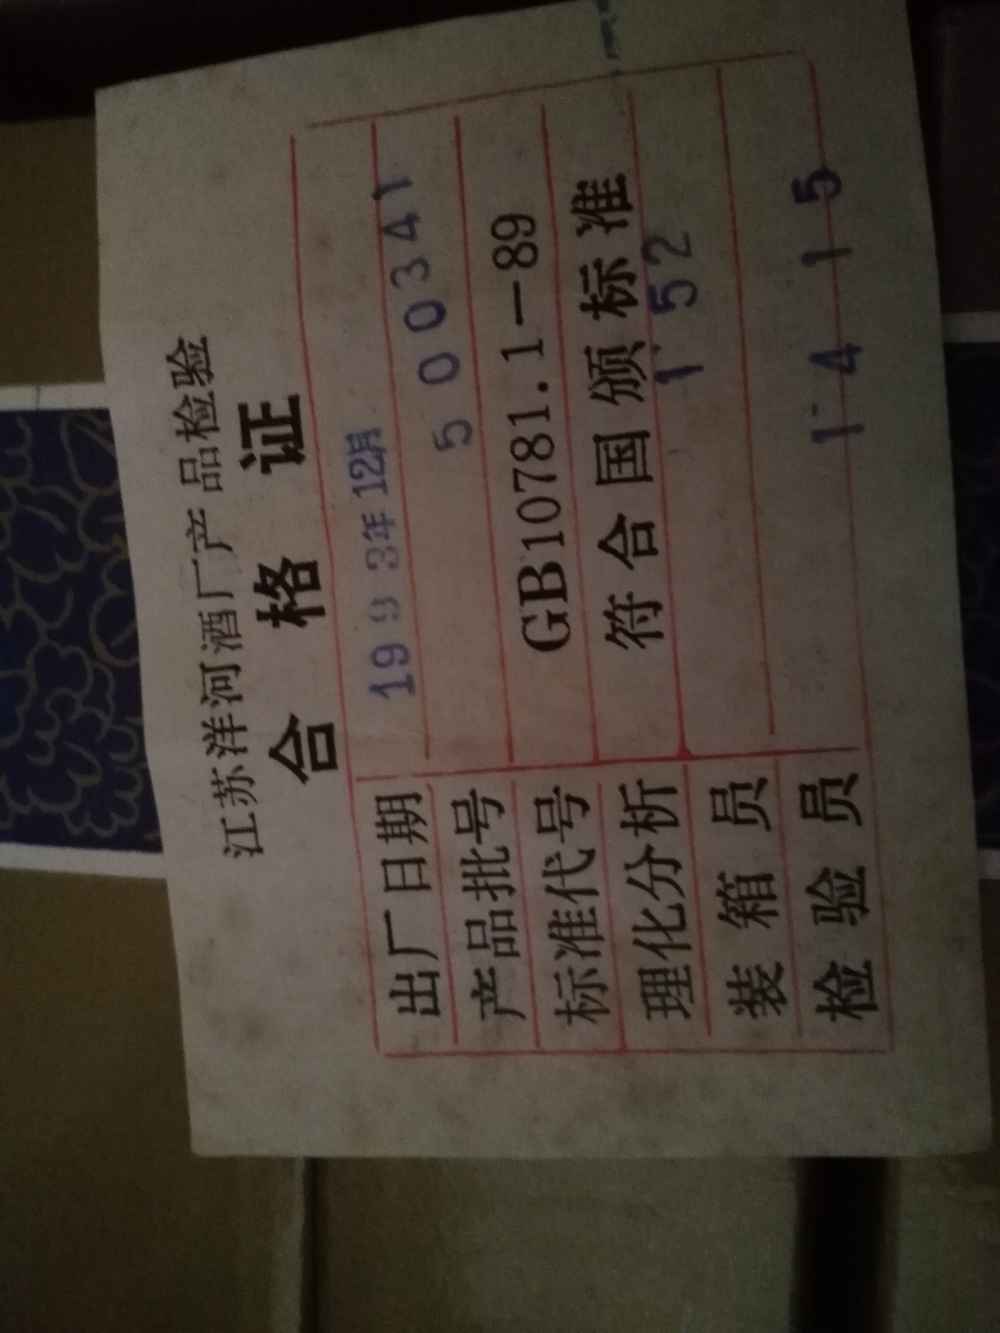 江苏洋河酒厂产品检验
合格证
出厂日期 1993年12月
产品批号 500341
标准代号 GB10781.1－89
理化分析 符合国颁标准
装箱员 152
检验员 1415